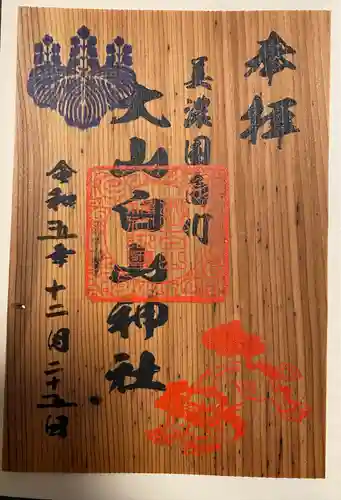 奉拝
美濃国白川
大山白山神社
令和五年十二月二十五日